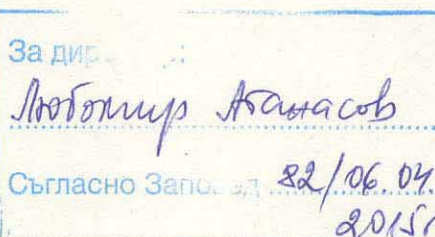 За дир :
Любомир Атанасов
Съгласно Запо ед 82/06.04.
2015г